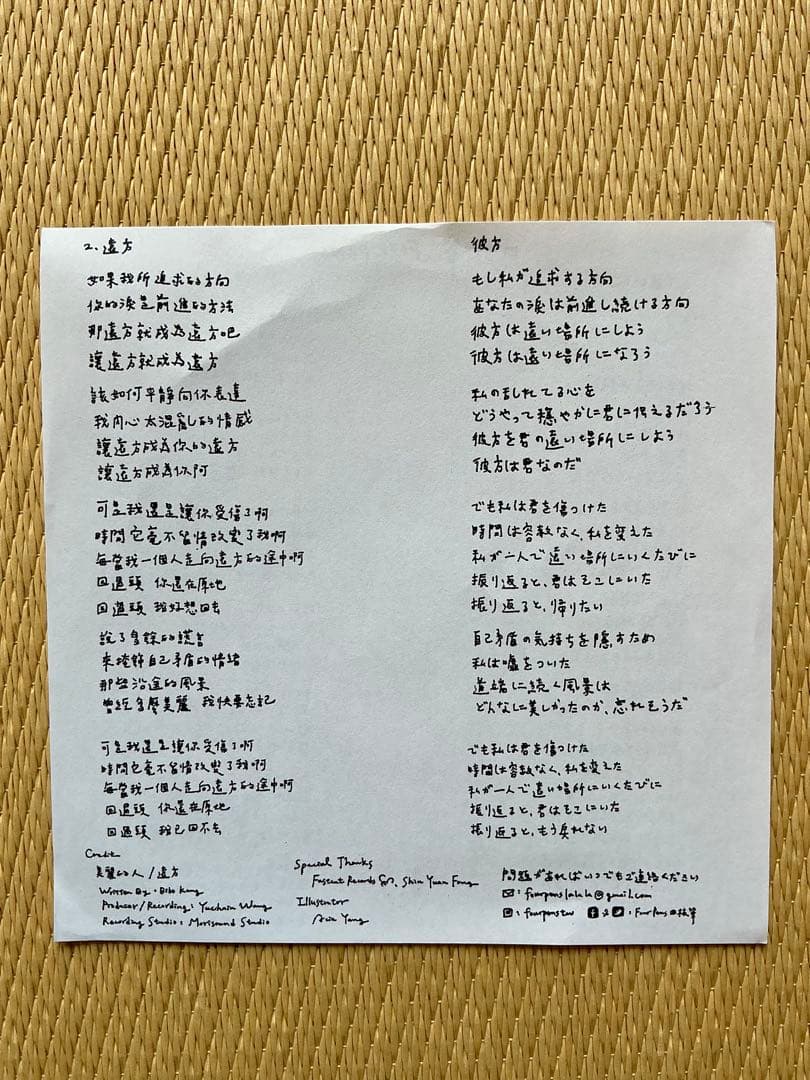 2. 遠方
如果我所追求的方向
你的淚是前進的方法
那遠方就成為遠方吧
讓遠方就成為遠方
該如何平靜向你表達
我內心太混亂的情感
讓遠方成為你的遠方
讓遠方成為你阿
可是我還是讓你受傷了啊
時間它毫不留情改變了我啊
每當我一個人走向遠方的途中啊
回過頭 你還在原地
回過頭 我好想回去
說了多餘的謊言
來掩飾自己矛盾的情緒
那些沿途的風景
曾經多麼美麗 我快要忘記
可是我還是讓你受傷了啊
時間它毫不留情改變了我啊
每當我一個人走向遠方的途中啊
回過頭 你還在原地
回過頭 我已回不去
彼方
もし私が追求する方向
あなたの涙は前進し続ける方向
彼方は遠い場所にしよう
彼方は遠い場所になろう
私のみだれてる心を
どうやって穏やかに君に伝えるだろう
彼方を君の遠い場所にしよう
彼方は君なのだ
でも私は君を傷つけた
時間は容赦なく、私を変えた
私が一人で遠い場所にいくたびに
振り返ると、君はそこにいた
振り返ると、帰りたい
自己矛盾の気持ちを隠すため
私は嘘をついた
道緒に続く風景は
どんなに美しかったのか、忘れそうだ
でも私は君を傷つけた
時間は容赦なく、私を変えた
私が一人で遠い場所にいくたびに
振り返ると、君はそこにいた
振り返ると、もう戻れない
Credit
美麗的人 / 遠方
Written By: Bibo
Producer / Recording: Yuchain Wang
Recording Studio: Morisound Studio
Special Thanks
Fastcut Records, Shin Yuan Fong
Illustrator
Yang
問題があればいつでもご連絡ください
: fourpenslalala@gmail.com
: fourpenstw : FourPens四枝筆